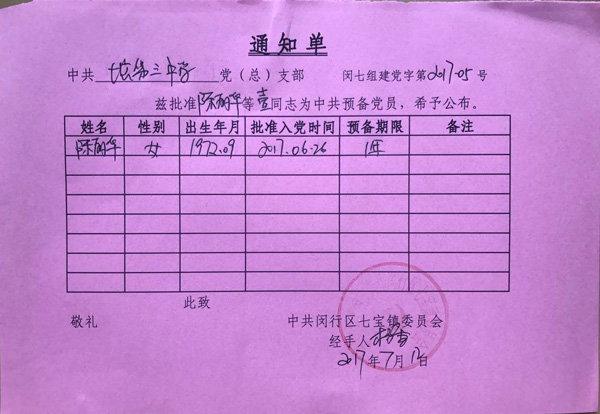 通知单
中共 七宝第三中学 党（总）支部 闵七组建党字第2017-05号
兹批准陈丽华等壹同志为中共预备党员，希予公布。
姓名 性别 出生年月 批准入党时间 预备期限 备注
陈丽华 女 1972.09 2017.06.26 1年
此致
敬礼 中共闵行区七宝镇委员会
经手人
2017年7月12日